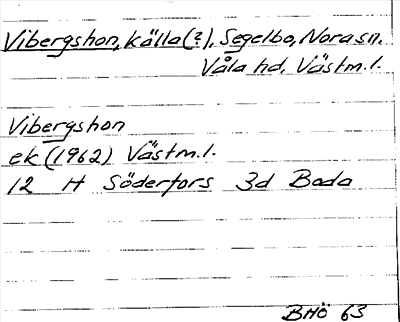 Vibergshon, källa(?), Segelbo, Nora sn.
Våla hd. Västm.l.
Vibergshon
ek (1962) Västm.l.
12 H Söderfors 3d Boda
BHÖ 63